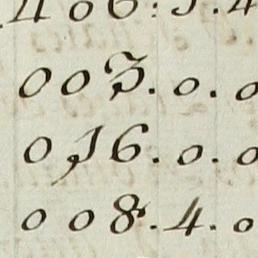 406:5.4
003.0.0
016.0.0
008.4.0